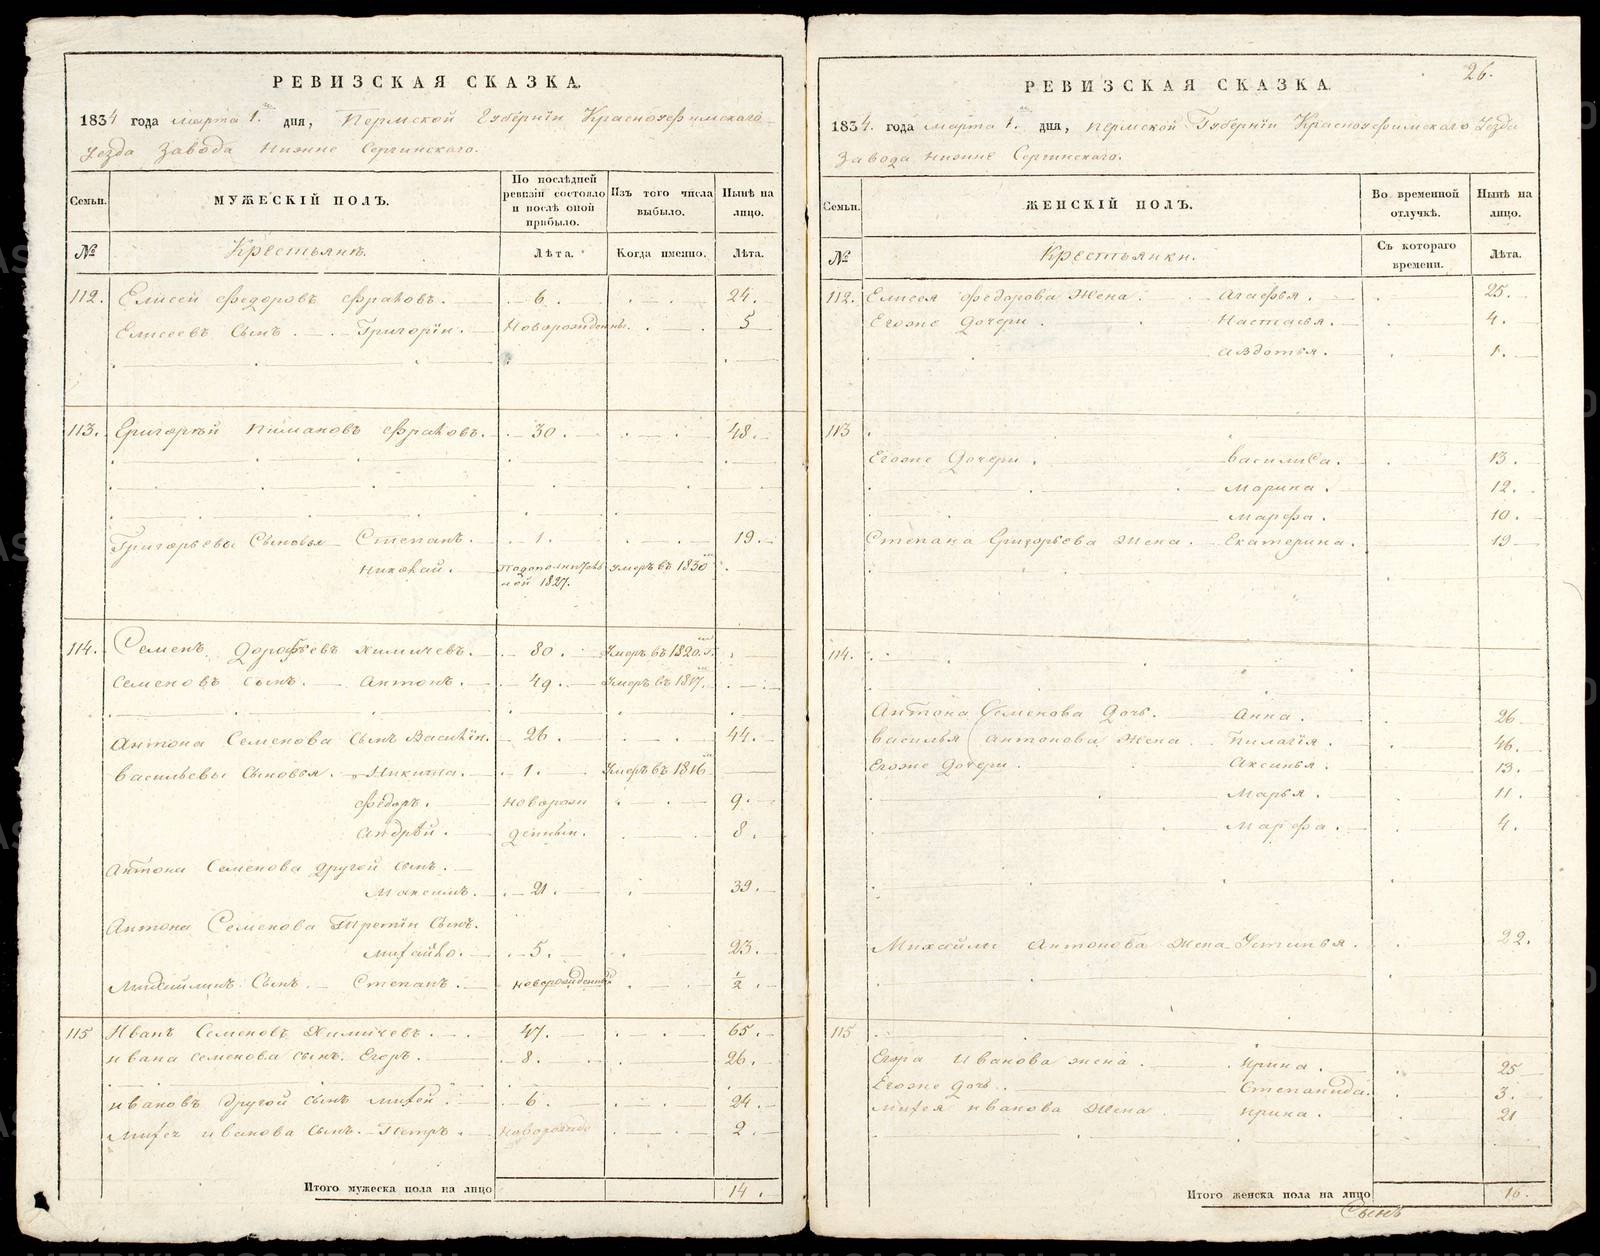 РЕВИЗСКАЯ СКАЗКА.
1834 года марта 1. дня, Пермской Губернїи Красноуфимскаго
Уезда Завода Нижне Сергинскаго.
Семьи.
МУЖЕСКІЙ ПОЛЪ.
По послѣдней ревизіи состояло и послѣ оной прибыло.
Изъ того числа выбыло.
Нынѣ на лицо.
№
Крестьянъ.
Лѣта.
Когда именно.
Лѣта.
112. Елисей Федоровъ 6. 24.
Елисеевъ Сынъ. Григорїи. Новорожденны. 5
113. Григорей 30. 48.
Григорьевы Сыновья Степанъ. 1. 19.
Николай. 1827. умеръ въ 1830
114. Семенъ Дорофеевъ Химичевъ. 80. Умеръ въ 1820.
Семеновъ Сынъ. Антонъ. 49. Умеръ въ 1817.
Антона Семенова Сынъ Василїи. 26. 44.
Васильевы Сыновья. Никита. 1. Умеръ въ 1816
Федоръ. Новорож 9.
Андрѣй. денныи. 8.
Антона Семенова другой сынъ.
Максимъ. 21. 39.
Антона Семенова Третїи Сынъ.
Михайло. 5. 23.
Михайлинъ Сынъ. Степанъ. новорожденный ½.
115 Иванъ Семеновъ Химичевъ. 47. 65.
Ивана Семенова сынъ. Егоръ. 8. 26.
Ивановъ другой сынъ Михей. 6. 24.
Михея Иванова сынъ. Петръ. Новорожде 2.
Итого мужеска пола на лицо 14.
26.
РЕВИЗСКАЯ СКАЗКА.
1834. года марта 1. дня, Пермской Губернїи Красноуфимскаго Уезда
Завода Нижне Сергинскаго.
Семьи.
ЖЕНСКІЙ ПОЛЪ.
Во временной отлучкѣ.
Нынѣ на лицо.
№
Крестьянки.
Съ котораго времени.
Лѣта.
112. Елисея Федорова Жена. Агафья. 25.
Егоже Дочери. Настасья. 4.
Авдотья. 1.
113
Егоже Дочери. Василиса. 13.
Марина. 12.
Марфа. 10.
Степана Григорьева Жена. Екатерина. 19
114.
Антона Семенова Дочь. Анна. 26
Василья Антонова Жена. Пилагїя. 46.
Егоже Дочери. Аксинья. 13.
Марья. 11.
Марфа. 4.
Михайлы Антонова Жена Устинья. 22.
115
Егора Иванова жена. Ирина. 25
Егоже Дочь. Степанида. 3.
Михея Иванова Жена Ирина. 21
Итого женска пола на лицо 16.
Сынъ